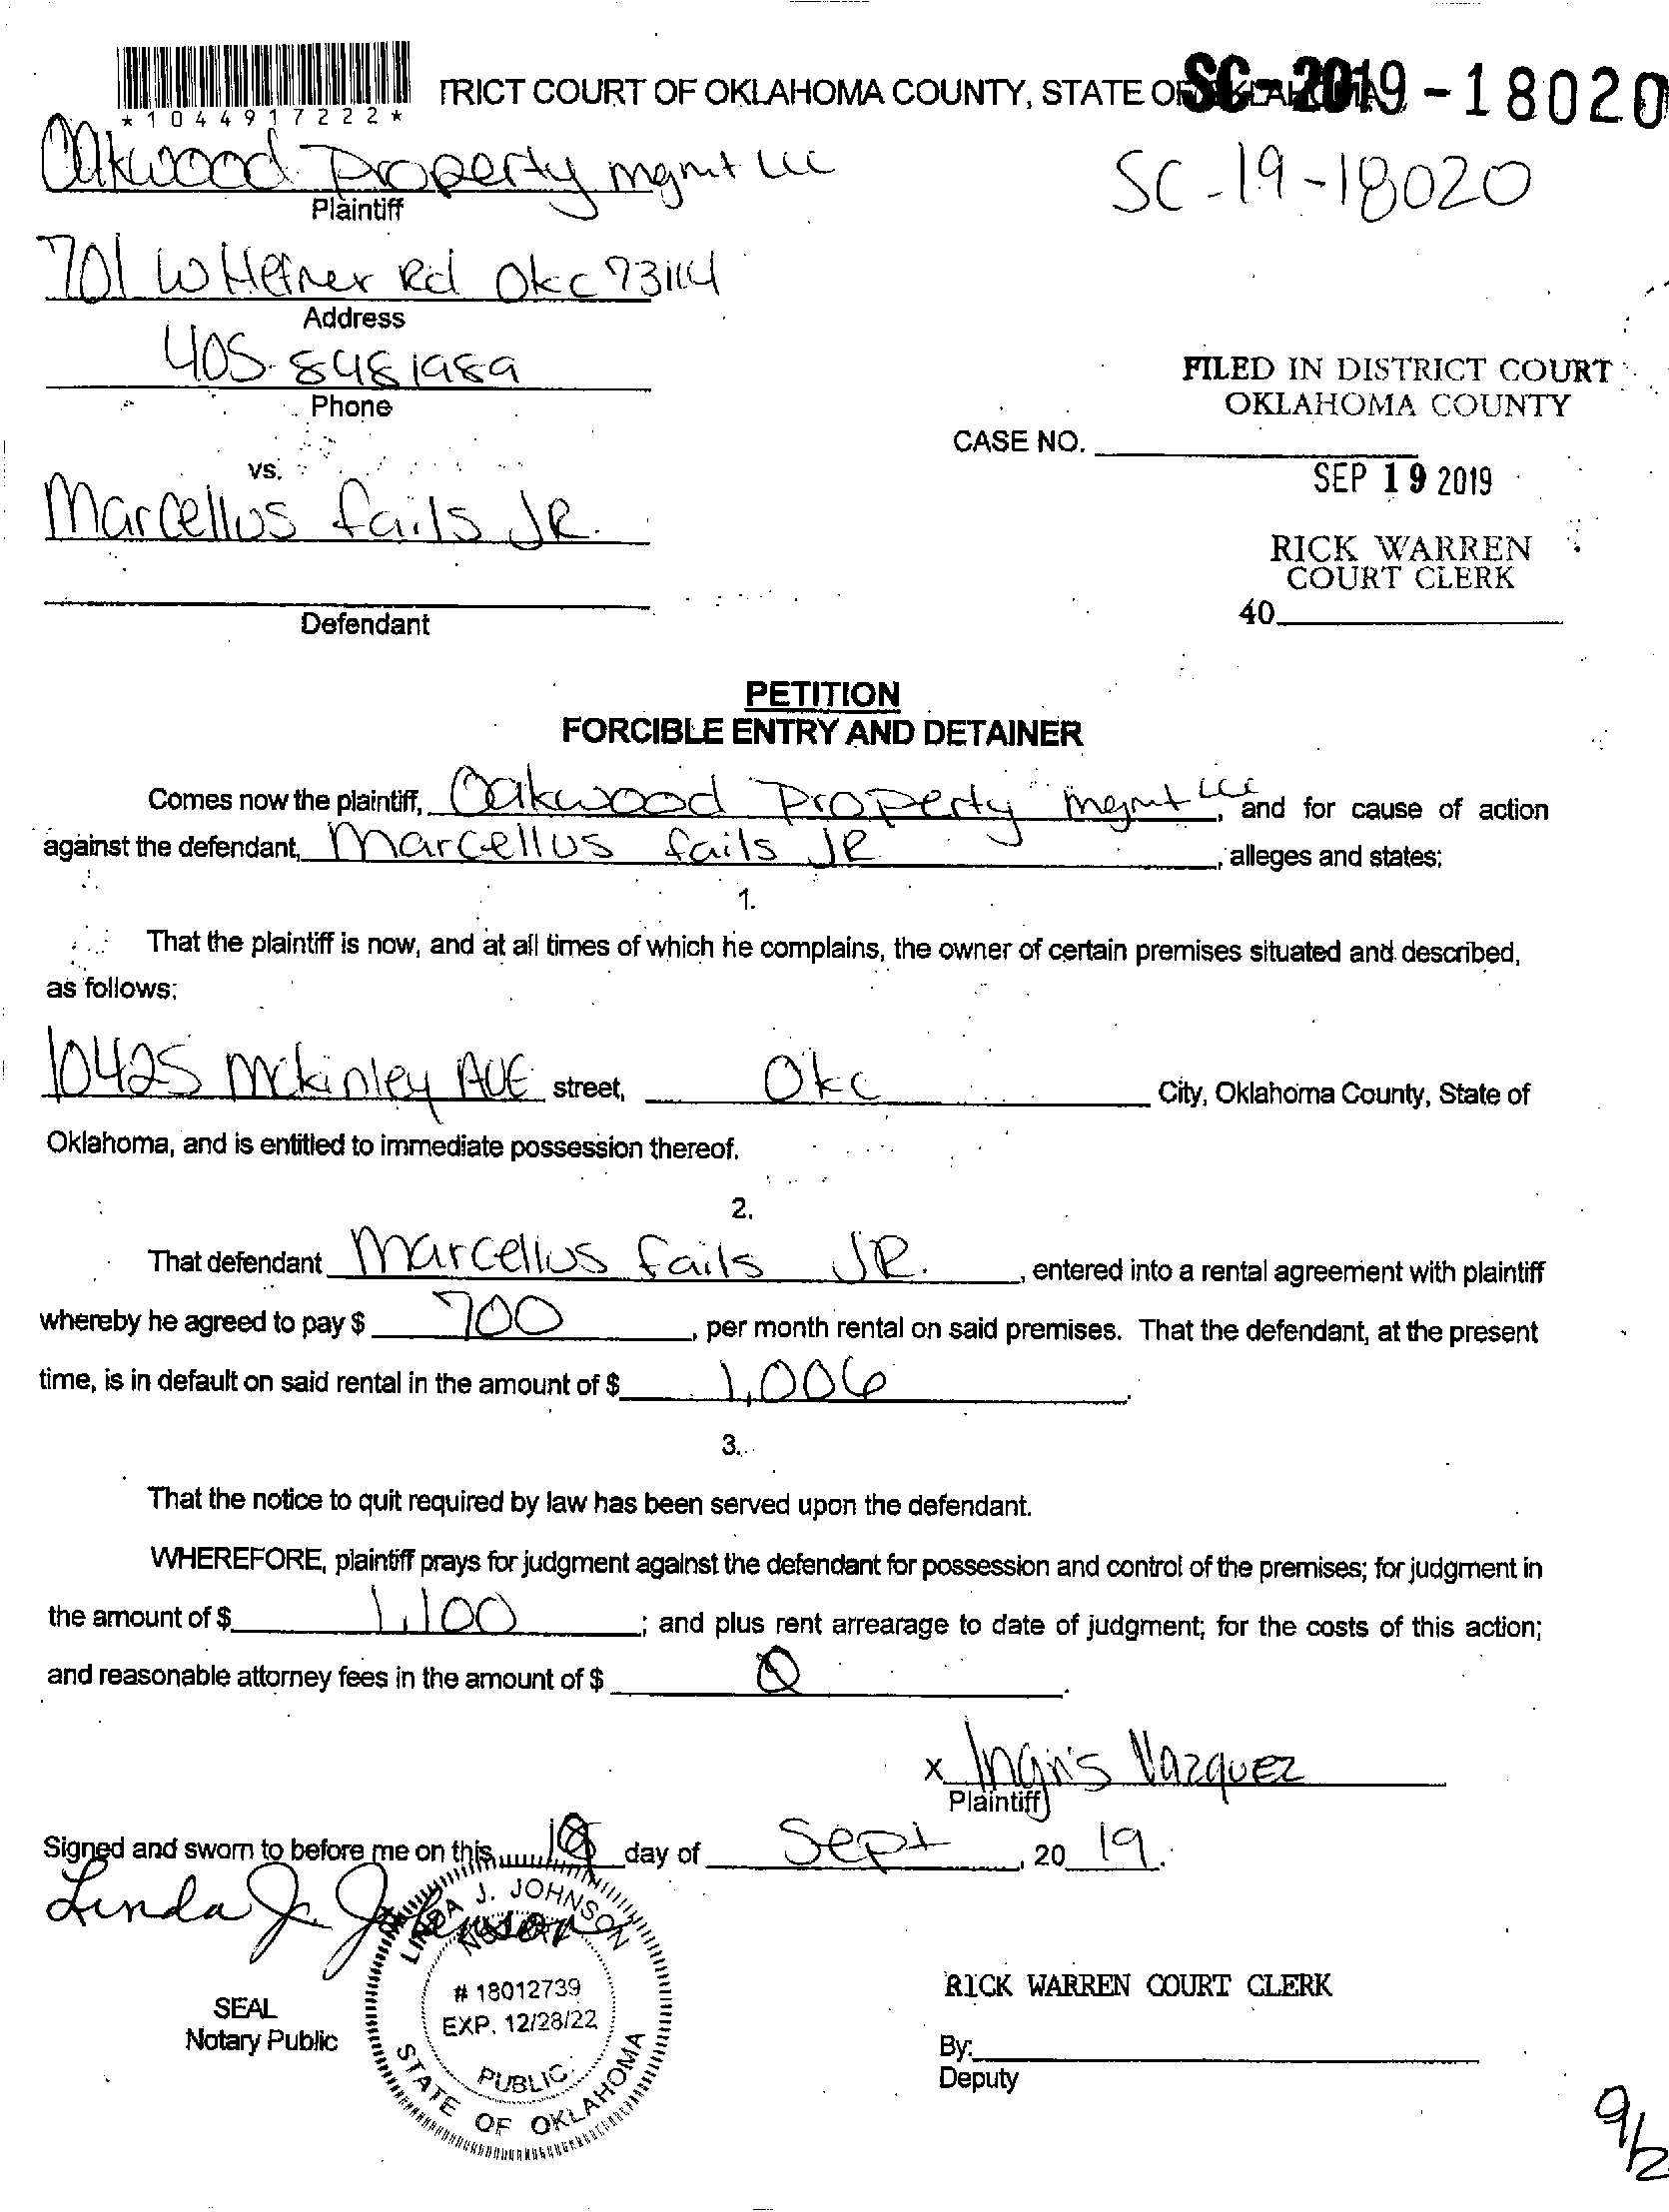 *1044917222*
TRICT COURT OF OKLAHOMA COUNTY, STATE OF OKLAHOMA
SC-2019-18020
Oakwood Property mgmt LLC
Plaintiff
SC-19-18020
701 W Hefner Rd Okc 73114
Address
405-8481989
Phone
FILED IN DISTRICT COURT
OKLAHOMA COUNTY
CASE NO.
vs.
SEP 19 2019
Marcellus fails JR.
RICK WARREN
COURT CLERK
40
Defendant
PETITION
FORCIBLE ENTRY AND DETAINER
Comes now the plaintiff, Oakwood Property mgmt LLC, and for cause of action
against the defendant, Marcellus fails JR, alleges and states:
1.
That the plaintiff is now, and at all times of which he complains, the owner of certain premises situated and described,
as follows:
10425 Mckinley AVE street, Okc City, Oklahoma County, State of
Oklahoma, and is entitled to immediate possession thereof.
2.
That defendant Marcellus fails JR., entered into a rental agreement with plaintiff
whereby he agreed to pay $ 700, per month rental on said premises. That the defendant, at the present
time, is in default on said rental in the amount of $ 1,006.
3.
That the notice to quit required by law has been served upon the defendant.
WHEREFORE, plaintiff prays for judgment against the defendant for possession and control of the premises; for judgment in
the amount of $ 1,100; and plus rent arrearage to date of judgment; for the costs of this action;
and reasonable attorney fees in the amount of $ 0.
x Ingris Vazquez
Plaintiff
Signed and sworn to before me on this 18 day of Sept, 20 19.
Linda J. Johnson
LINDA J. JOHNSON
NOTARY
# 18012739
EXP. 12/28/22
PUBLIC
STATE OF OKLAHOMA
SEAL
Notary Public
RICK WARREN COURT CLERK
By:
Deputy